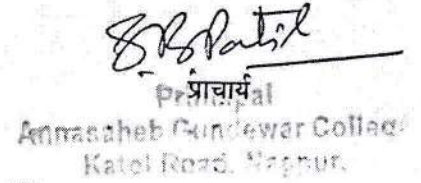 S. B. Patil
प्राचार्य
Principal
Annasaheb Gundewar College
Katol Road, Nagpur.